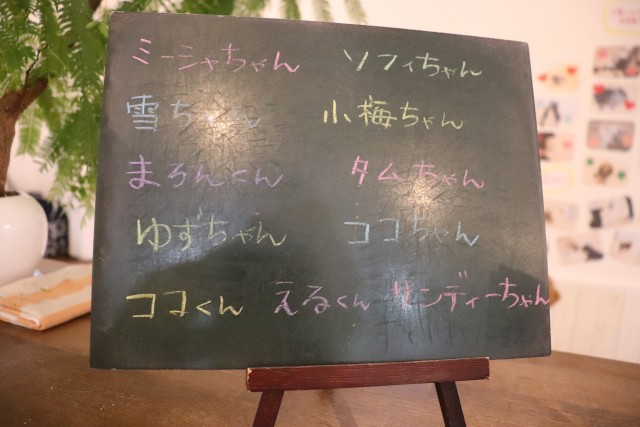 ミーシャちゃん ソフィちゃん
雪ちゃん 小梅ちゃん
まろんくん タムちゃん
ゆずちゃん ココちゃん
ココくん える くん サンディーちゃん